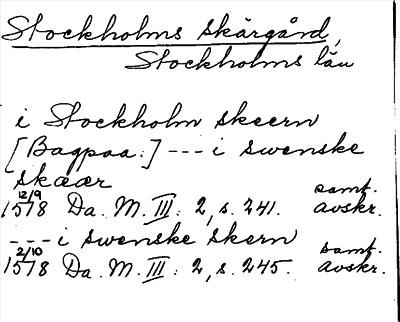 Stockholms skärgård,
Stockholms län
i Stockholm skeern
[Bagpaa:] --- i swenske
skäær
12/9 samt.
1578 Da. M. III: 2, s. 241. avskr.
--- i swenske skern
2/10 samt.
1578 Da. M. III: 2, s. 245. avskr.